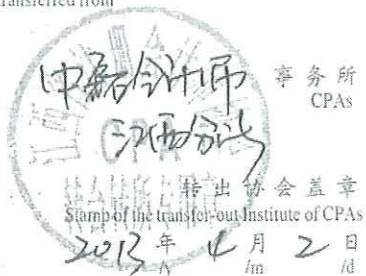 transferred from
中磊会计师 事务所
CPAs
江西分所
CPA
转出协会盖章
Stamp of the transfer-out Institute of CPAs
2013 年 12 月 2 日
/y /m /d